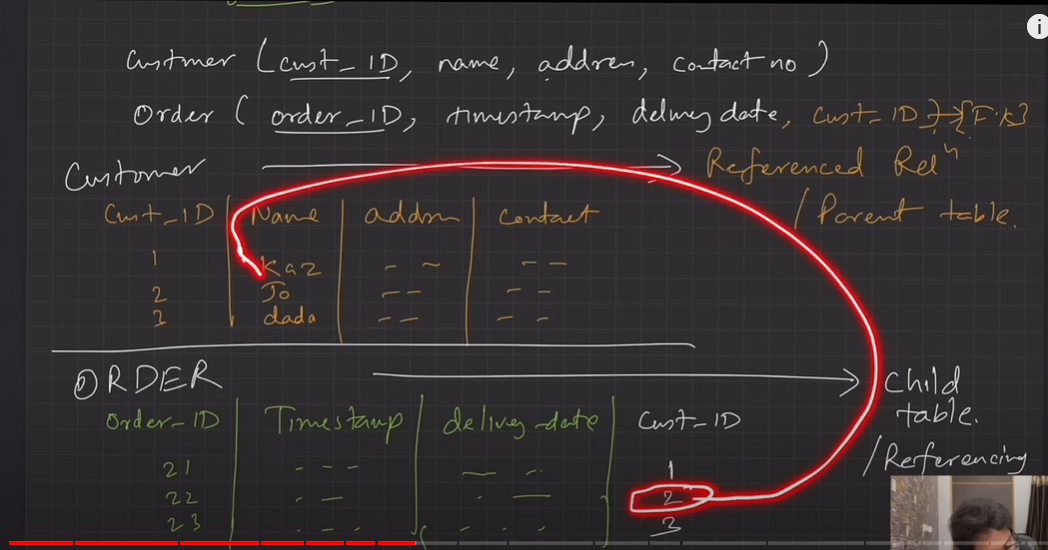 Custmer (cust_ID, name, addres, contact no)
Order (order_ID, timestamp, delivery date, Cust_ID} → {F.K}
Customer → Referenced Relⁿ
/Parent table.
Cust_ID Name addrs contact
1 Kaz -- --
2 Jo -- --
3 dada -- --
ORDER → Child
table.
/Referencing
Order_ID Timestamp delivey-date Cust_ID
21 --- -- 1
22 -- -- 2
23 --- --- 3
i